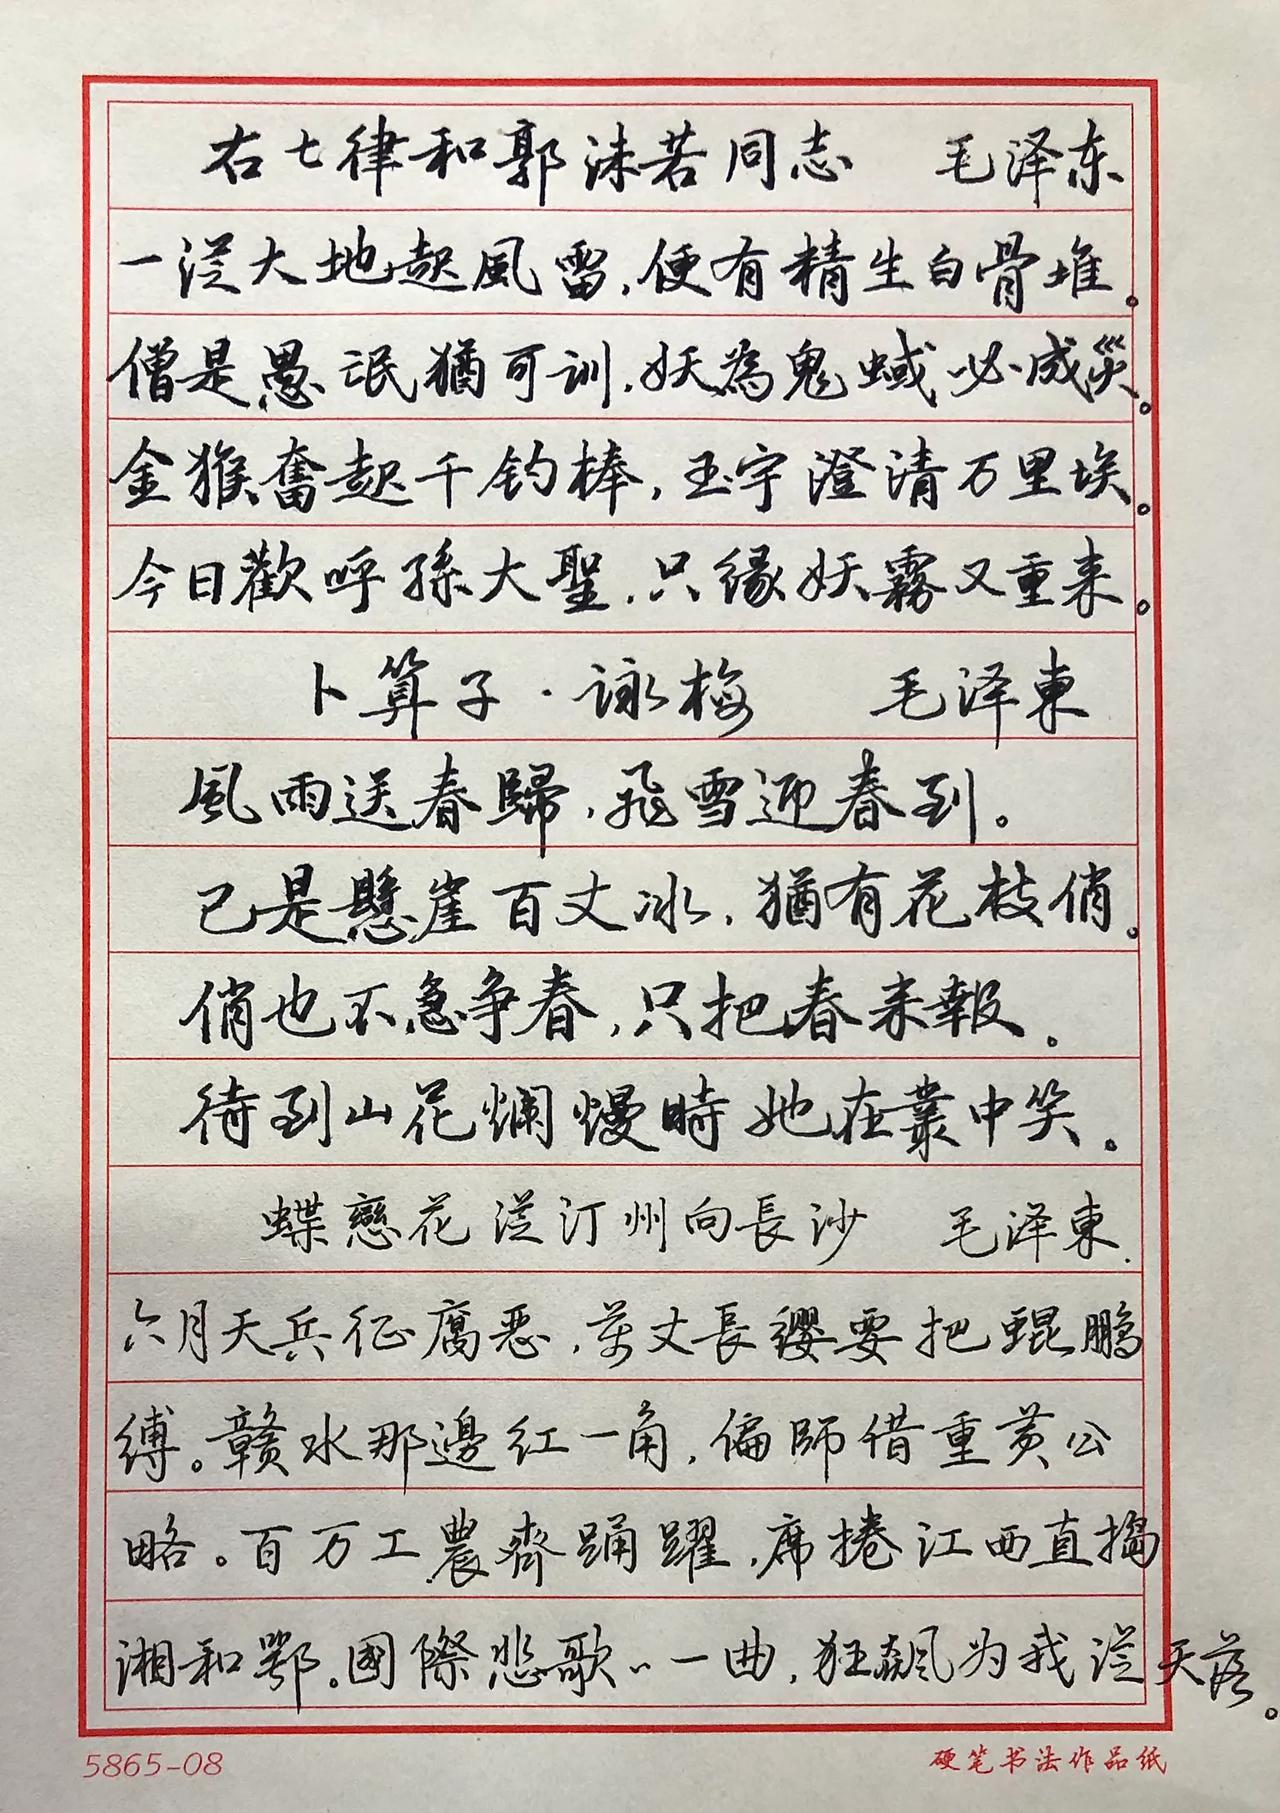 右七律和郭沫若同志 毛泽东
一從大地起風雷,便有精生白骨堆。
僧是愚氓猶可训,妖為鬼蜮必成災。
金猴奮起千钧棒,玉宇澄清万里埃。
今日歡呼孫大聖,只缘妖霧又重来。
卜算子·詠梅 毛泽東
風雨送春歸,飛雪迎春到。
已是懸崖百丈冰,猶有花枝俏。
俏也不急争春,只把春来報。
待到山花爛熳時她在叢中笑。
蝶戀花從汀州向長沙 毛泽東.
六月天兵征腐恶,萬丈長纓要把鲲鹏
缚。赣水那邊红一角,偏師借重黄公
略。百万工農齊踊躍,席捲江西直搗
湘和鄂。國際悲歌..一曲,狂飙为我從天落。
5865-08
硬笔书法作品纸